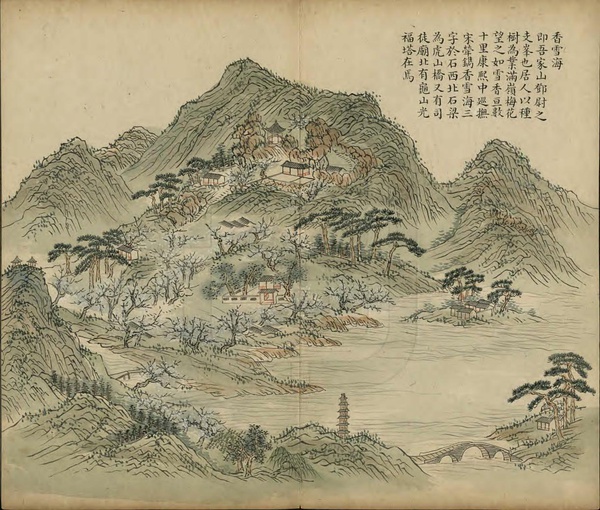 香雪海
即吾家山鄧尉之
支峯也居人以種
樹為業滿嶺梅花
望之如雪香亘數
十里康熙中巡撫
宋犖鐫香雪海三
字於石西北石梁
為虎山橋又有司
徒廟北有龜山光
福塔在焉